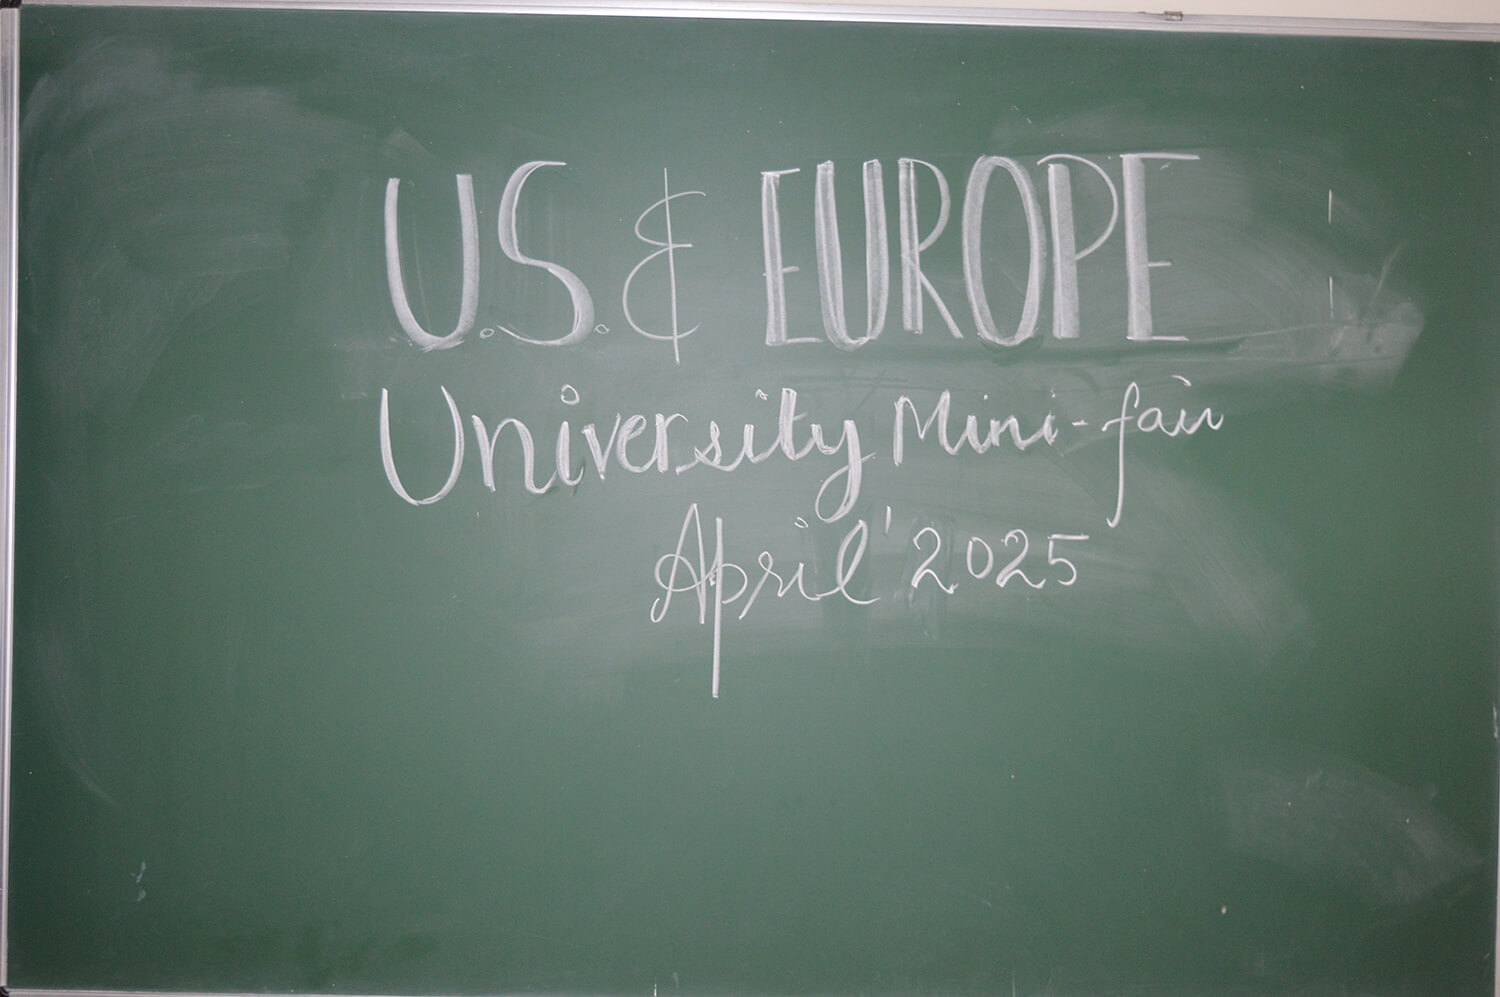 U.S. & EUROPE
University Mini-fair
April' 2025